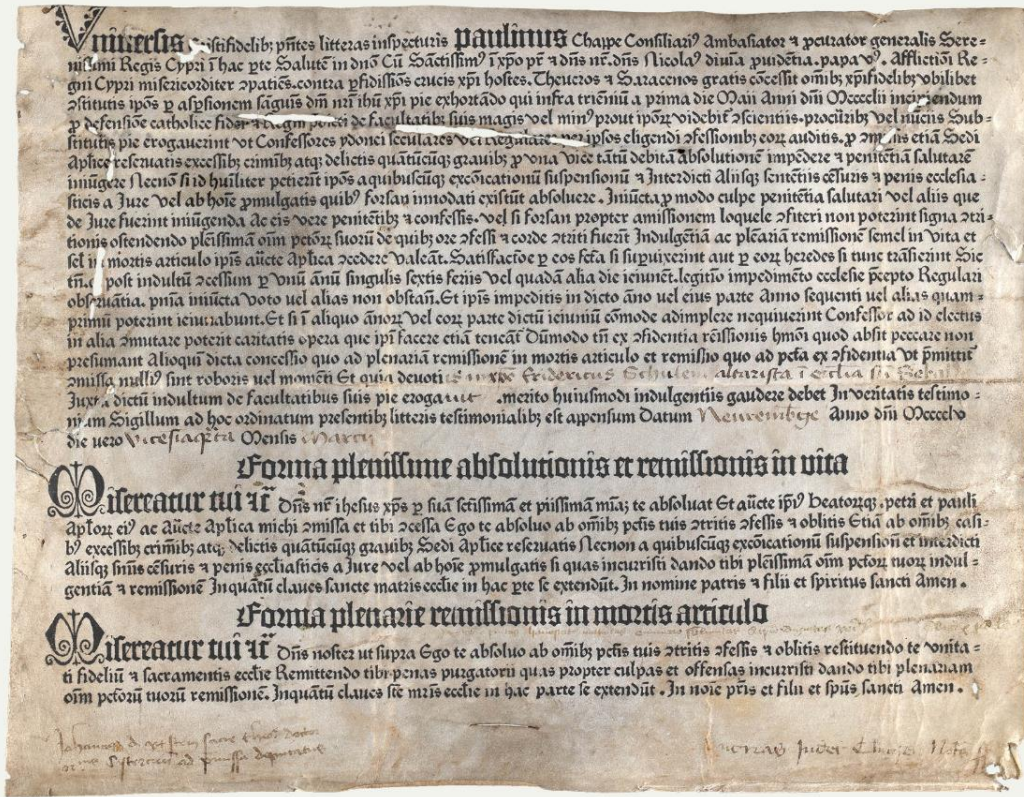 Vniuersis Cristifidelibꝫ pñtes litteras inspecturis Paulinus Chappe Consiliariꝰ Ambasiator ⁊ ꝓcurator generalis Sere=
nissimi Regis Cypri ī hac ꝑte Salutem in dnō Cū Sanctissimꝰ ī xp̄o pr̄ ⁊ dn̄s nr̄. dn̄s Nicolaꝰ diuīa ꝓuidētia. papa vꝰ. Afflictioni Re=
gni Cypri misericorditer ɔpatiēs. contra ꝑfidissimos crucis xp̄i hostes. Theucros ⁊ Saracenos gratis cōcessit omībꝫ xp̄ifidelibꝫ vbilibet
ɔstitutis ipōs ꝑ aspsionem sāguīs dn̄i nr̄i ihū xp̄i pie exhortādo qui infra triēniū a prima die Maii Anni dn̄i Mcccclii incipiendum
ꝓ defensiōe catholice fidei ⁊ Regni de facultatibꝫ suis magis vel minꝰ prout ipōꝝ videbit ɔscientiis. procuribꝫ vel nūciis Sub=
stitutis pie erogauerint vt Confessores ydonei seculares vel Regulares per ipsos eligendi ɔfessionibꝫ eoꝝ auditis. ꝓ etiā Sedi
Aplīce reseruatis excessibꝫ crimībꝫ atqꝫ delictis quātūcūqꝫ grauibꝫ ꝓ vna vice tātū debitā absolutionē impēdere ⁊ penitētiā salutarē
iniūgere Necnō si id hūiliter petierīt ipōs a quibuscūqꝫ excōicationū suspensionū ⁊ Interdicti Aliisqꝫ sentētiis cēsuris ⁊ penis ecclesia=
sticis a Jure vel ab hoīe ꝓmulgatis quibꝰ forsan innodati existūt absoluere. Iniūcta ꝓ modo culpe penitētia salutari vel aliis que
de Jure fuerint iniūgenda Ac eis vere penitētibꝫ ⁊ confessis. vel si forsan propter amissionem loquele ɔfiteri non poterint signa ɔtri=
tionis ostendendo plēissimā oīm pctōꝝ suoꝝ de quibꝫ ore ɔfessi ⁊ corde ɔtriti fuerīt Indulgētiā ac plēariā remissionē semel in vita et
sel̄ in mortis articulo ipīs aūcte Aplīca ɔcedere valeāt. Satisfactōe ꝑ eos fcta si supuixerint aut ꝑ eoꝝ heredes si tunc trāsierint Sic
tn̄. post indultū ɔcessum ꝑ vnū ānū singulis sextis feriis vel quadā alia die ieiunēt. legitīo impedimēto ecclesie p̄cepto Regulari
obseruātia. pn̄ia iniūcta voto vel alias non obstan̄. Et ipīs impeditis in dicto āno vel eius parte Anno sequenti vel alias quam=
primū poterint ieiunabunt. Et si ī aliquo ānoꝝ vel eoꝝ parte dictū ieiuniū cōmode adimplere nequiuerint Confessor ad id electus
in alia ɔmutare poterit caritatis opera que ipī facere etiā teneāt Dūmodo tn̄ ex ɔfidentia remissionis hmōi quod absit peccare non
presumant Alioquī dicta concessio quo ad plenariā remissionē in mortis articulo et remissio quo ad pctā ex ɔfidentia vt p̄mittit
ɔmissa nulliꝰ sint roboris vel momēti Et quia deuoti in xp̄o Fridericus Schulem altarista ī ecclīa sti
Juxta dictū indultum de facultatibus suis pie erogauit merito huiusmodi indulgentiis gaudere debet In veritatis testimo=
nium Sigillum ad hoc ordinatum presentibꝫ litteris testimonialibꝫ est appensum Datum Neurembge Anno dn̄i Mcccclv
die vero vicesīaqrta Mensis Marcii
Forma plenissime absolutionis et remissionis in vita
Misereatur tui ⁊c̄ Dn̄s nr̄ ihesus xp̄s ꝑ suā sctīssimā et piissimā mīaꝫ te absoluat Et aūcte ipīꝰ beatoꝝqꝫ. petri et pauli
Aplōꝝ eiꝰ ac Aūcte Aplīca michi ɔmissa et tibi ɔcessa Ego te absoluo ab omībꝫ pctīs tuis ɔtritis ɔfessis ⁊ oblitis Etiā ab omībꝫ casi=
bꝰ excessibꝫ crimībꝫ atqꝫ delictis quātūcūqꝫ grauibꝫ Sedi Aplīce reseruatis Necnon a quibuscūqꝫ excōicationū suspensionū et interdicti
Aliisqꝫ sn̄iis cēsuris ⁊ penis ecclīasticis a Jure vel ab hoīe ꝓmulgatis si quas incurristi dando tibi plēissimā oīm pctōꝝ tuoꝝ indul=
gentiā ⁊ remissionē Inquātū claues sancte matris ecclīe in hac ꝑte se extendūt. In nomine patris ⁊ filii et spiritus sancti Amen.
Forma plenarie remissionis in mortis articulo
Misereatur tui ⁊c̄ Dn̄s noster ut supra Ego te absoluo ab omībꝫ pctīs tuis ɔtritis ɔfessis ⁊ oblitis restituendo te vnita=
ti fideliū ⁊ sacramentis ecclīe Remittendo tibi penas purgatorii quas propter culpas et offensas incurristi dando tibi plenariam
oīm pctōrū tuorū remissionē. Inquātū claues stē mr̄is ecclīe in hac parte se extendūt. In noīe pr̄is et filii et spūs sancti Amen.
Johannes de sacre theo doctor
ad p̄missa deputatus